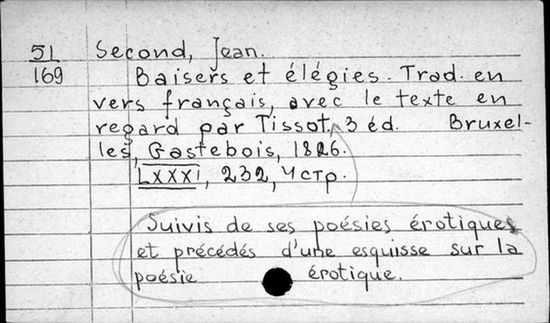 51
169
Second, Jean.
Baisers et élégies. Trad. en
vers français, avec le texte en
regard par Tissot, 3 éd. Bruxel-
les, Gastebois, 1826.
LXXXI, 232, 4 стр.
Suivis de ses poésies érotiques
et précédés d'une esquisse sur la
poésie érotique.